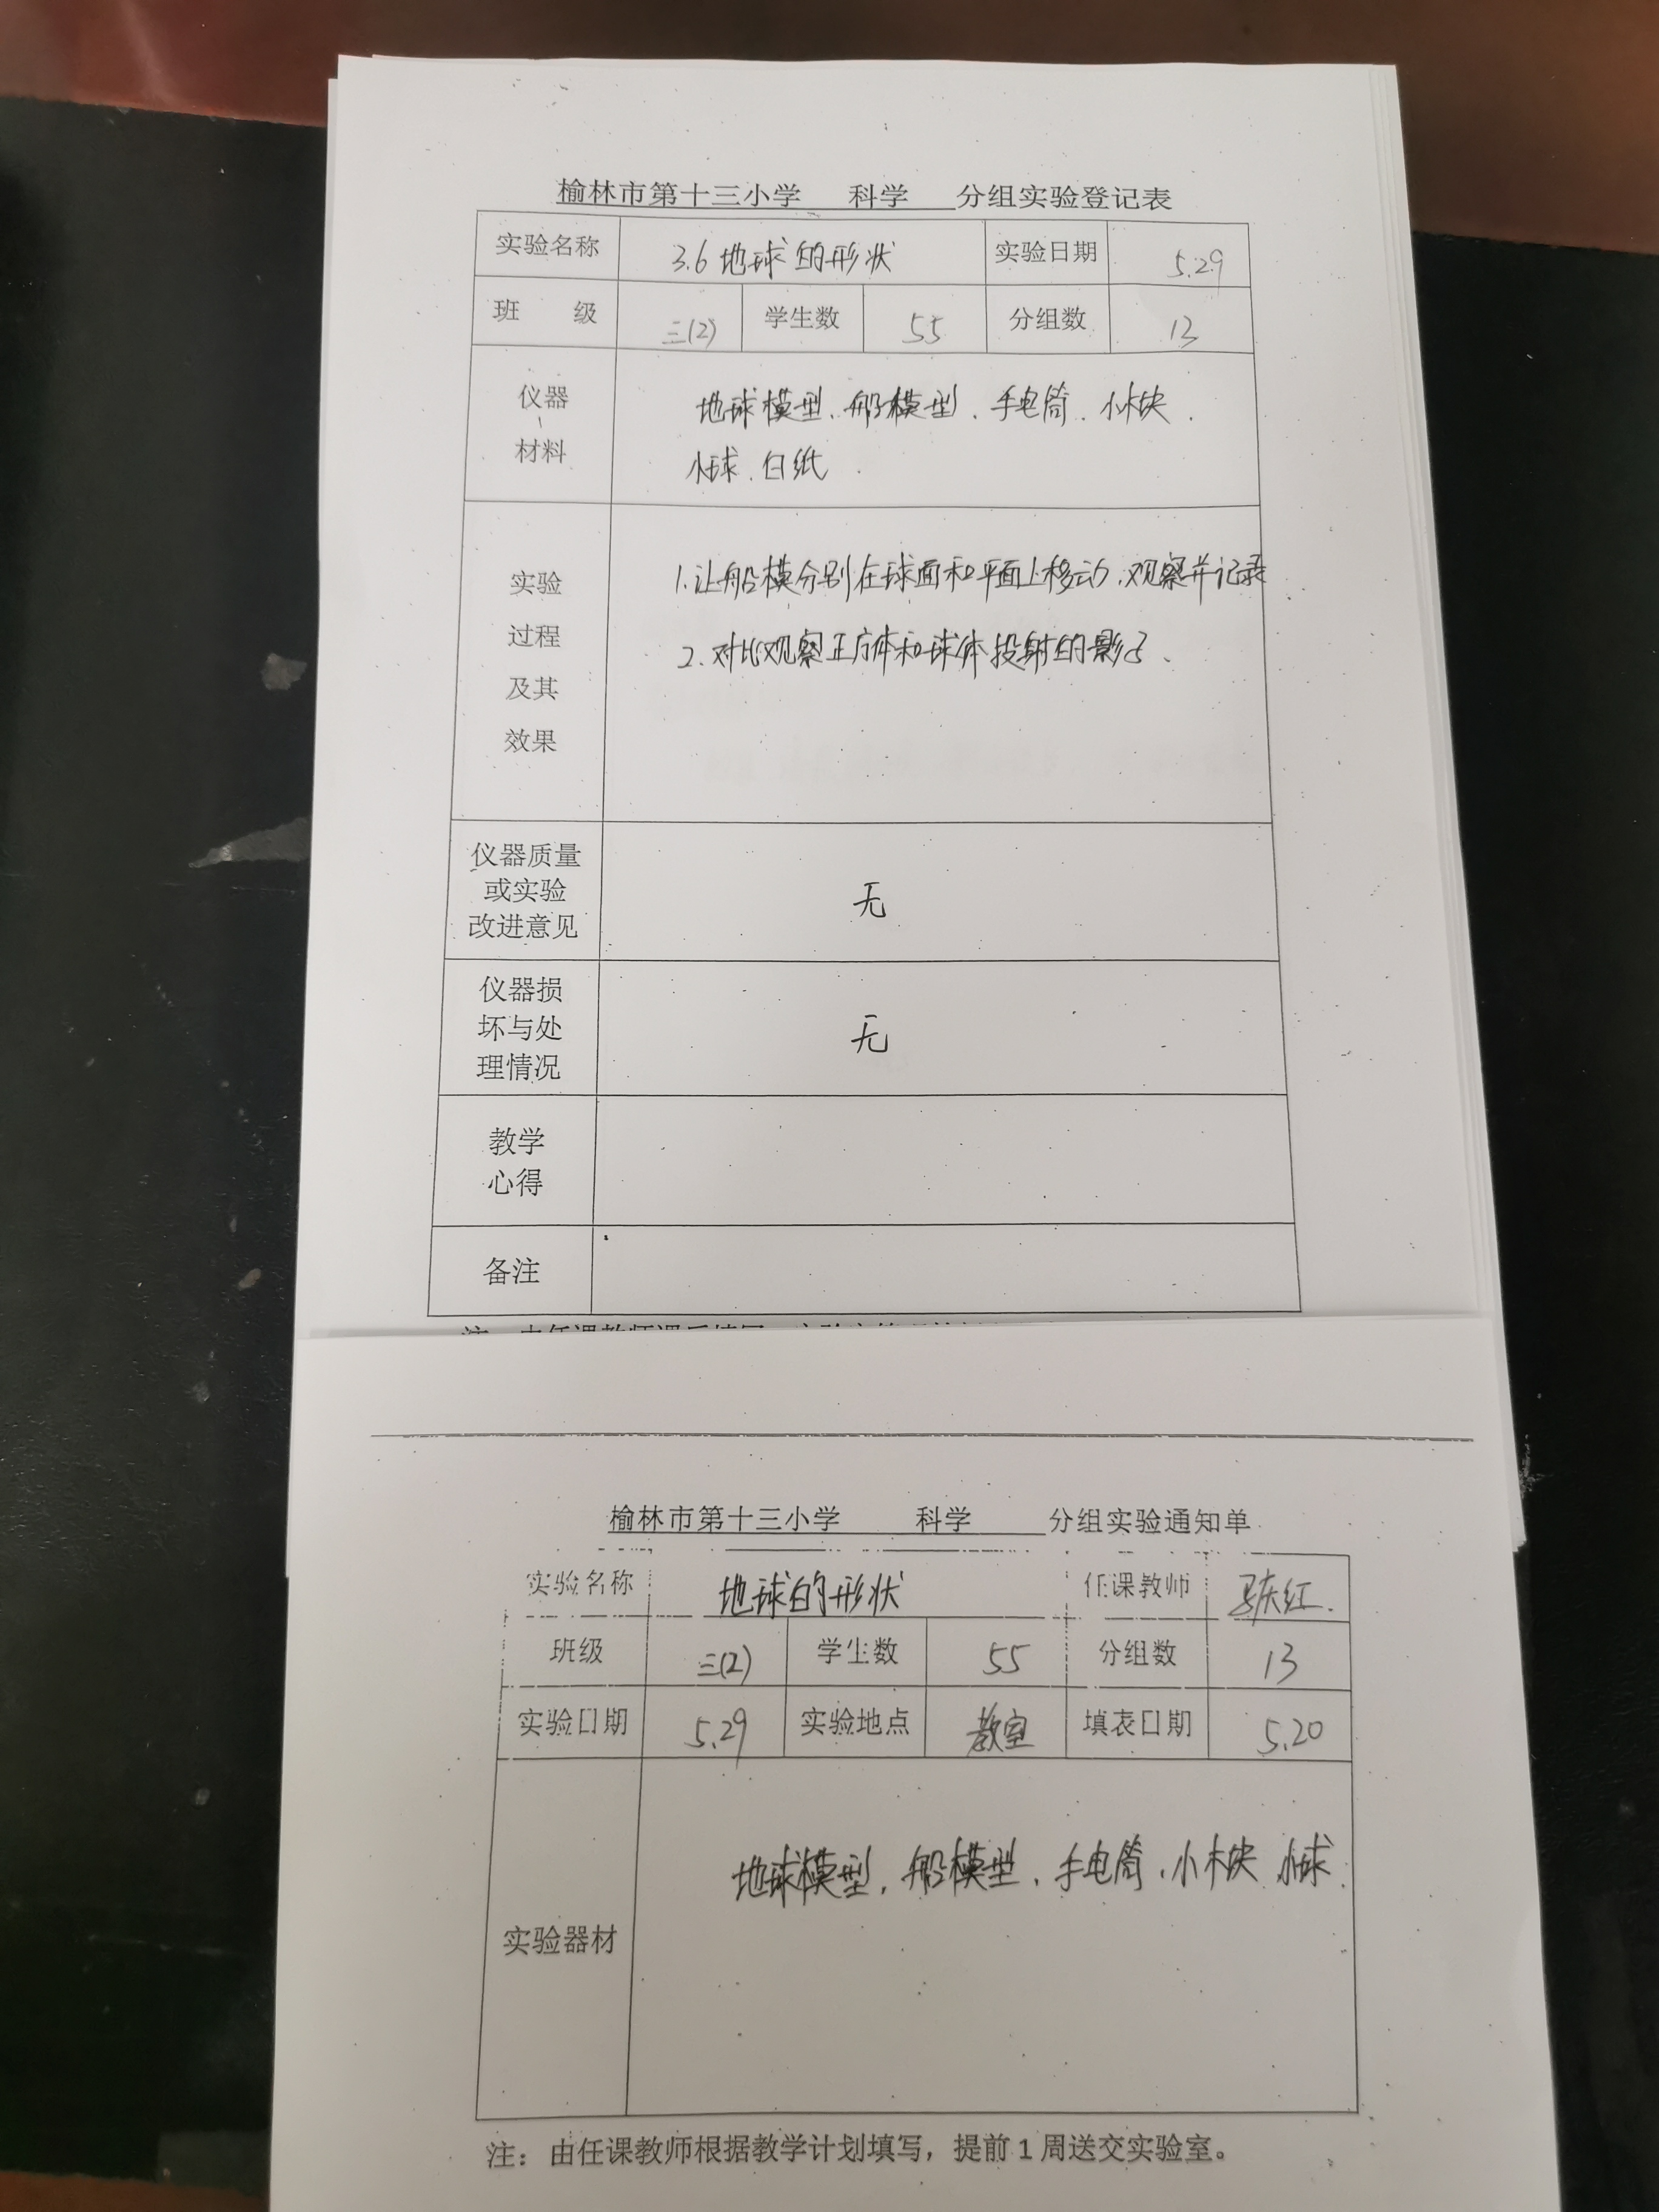 榆林市第十三小学 科学 分组实验登记表
实验名称 3.6 地球的形状 实验日期 5.29
班 级 三(2) 学生数 55 分组数 13
仪器 材料
地球模型、船模型、手电筒、小木块、
小球、白纸
实验 过程 及其 效果
1.让船模分别在球面和平面上移动,观察并记录
2.对比观察正方体和球体投射的影子、
仪器质量
或实验
改进意见
无
仪器损
坏与处
理情况
无
教学
心得
备注
榆林市第十三小学 科学 分组实验通知单
实验名称 地球的形状 任课教师
班级 三(2) 学生数 55 分组数 13
实验日期 5.29 实验地点 教室 填表日期 5.20
实验器材 地球模型、船模型、手电筒、小木块 小球
注:由任课教师根据教学计划填写,提前1周送交实验室。